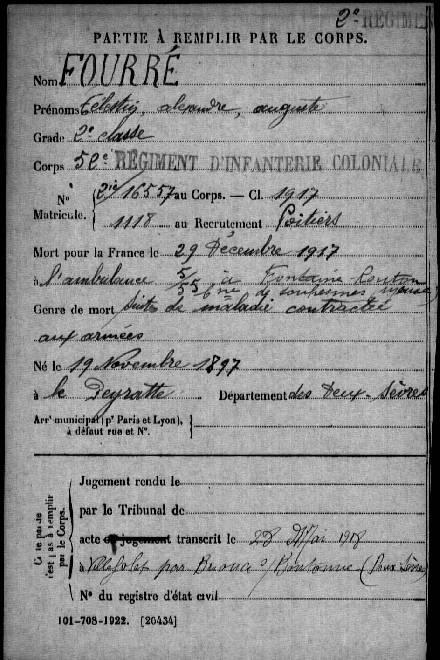 2e REGIMEN
PARTIE À REMPLIR PAR LE CORPS.
Nom FOURRÉ
Prénoms Célestin, alexandre, auguste
Grade 2e classe
Corps 52e RÉGIMENT D'INFANTERIE COLONIALE
N° 16557 au Corps. — Cl. 1917
Matricule. 1118 au Recrutement Poitiers
Mort pour la France le 29 Décembre 1917
à l'ambulance 5/55 à Fontaine
Genre de mort Suites de maladie contractée
aux armées
Né le 19 Novembre 1897
à le Peyratte Département des Deux-Sèvres
Arrt municipal (pr Paris et Lyon),
à défaut rue et N°.
Ce te partie n'est pas à remplir par le Corps.
Jugement rendu le
par le Tribunal de
acte ou jugement transcrit le 28 Mai 1918
à par Boutonne (Deux Sèvres)
N° du registre d'état civil
101-708-1922. [26434]